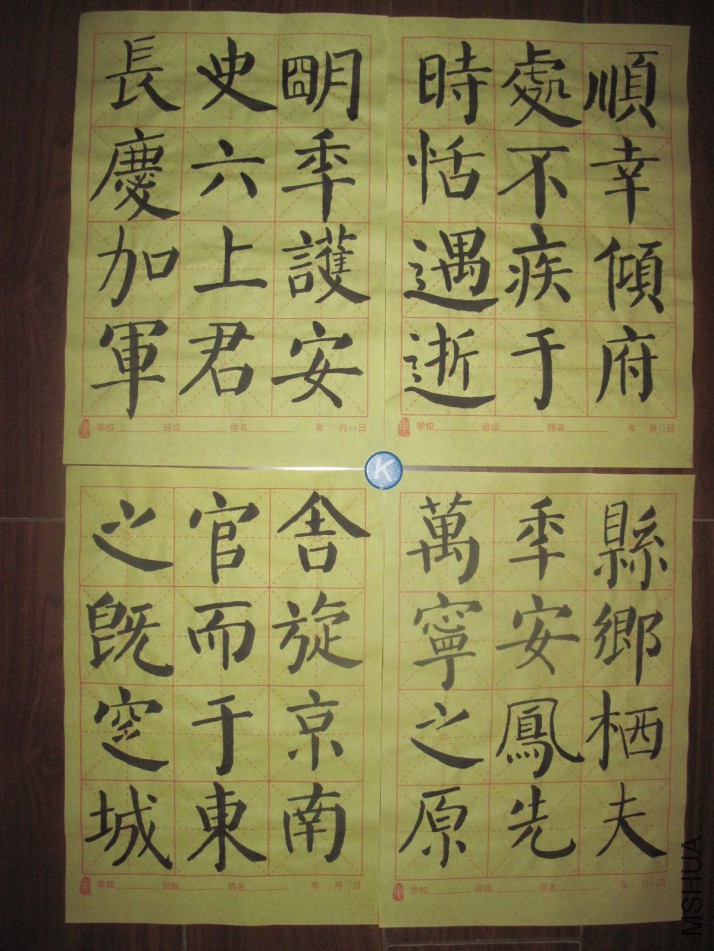 長史朙
慶六秊
加上護
軍君安
学校 班级 姓名 年 月 日
時處順
恬不幸
遇疾傾
逝于府
学校 班级 姓名 年 月 日
K
之官舍
既而旋
窆于京
城東南
学校 班级 姓名 年 月 日
萬秊縣
寧安鄉
之鳳栖
原先夫
学校 班级 姓名 年 月 日
MSHUA